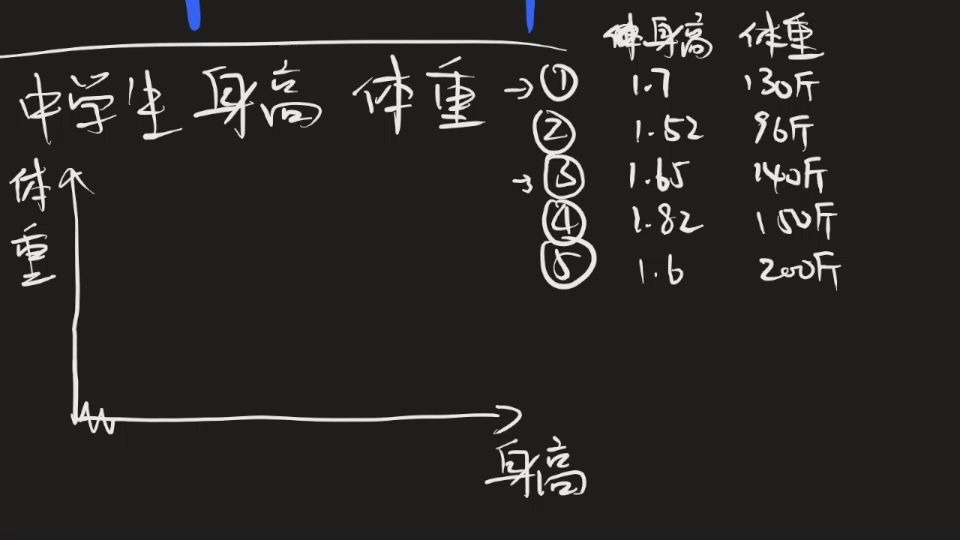 中学生 身高 体重
体重
身高
身高 体重
→ ① 1.7 130斤
② 1.52 96斤
→ ③ 1.65 140斤
④ 1.82 150斤
⑤ 1.6 200斤